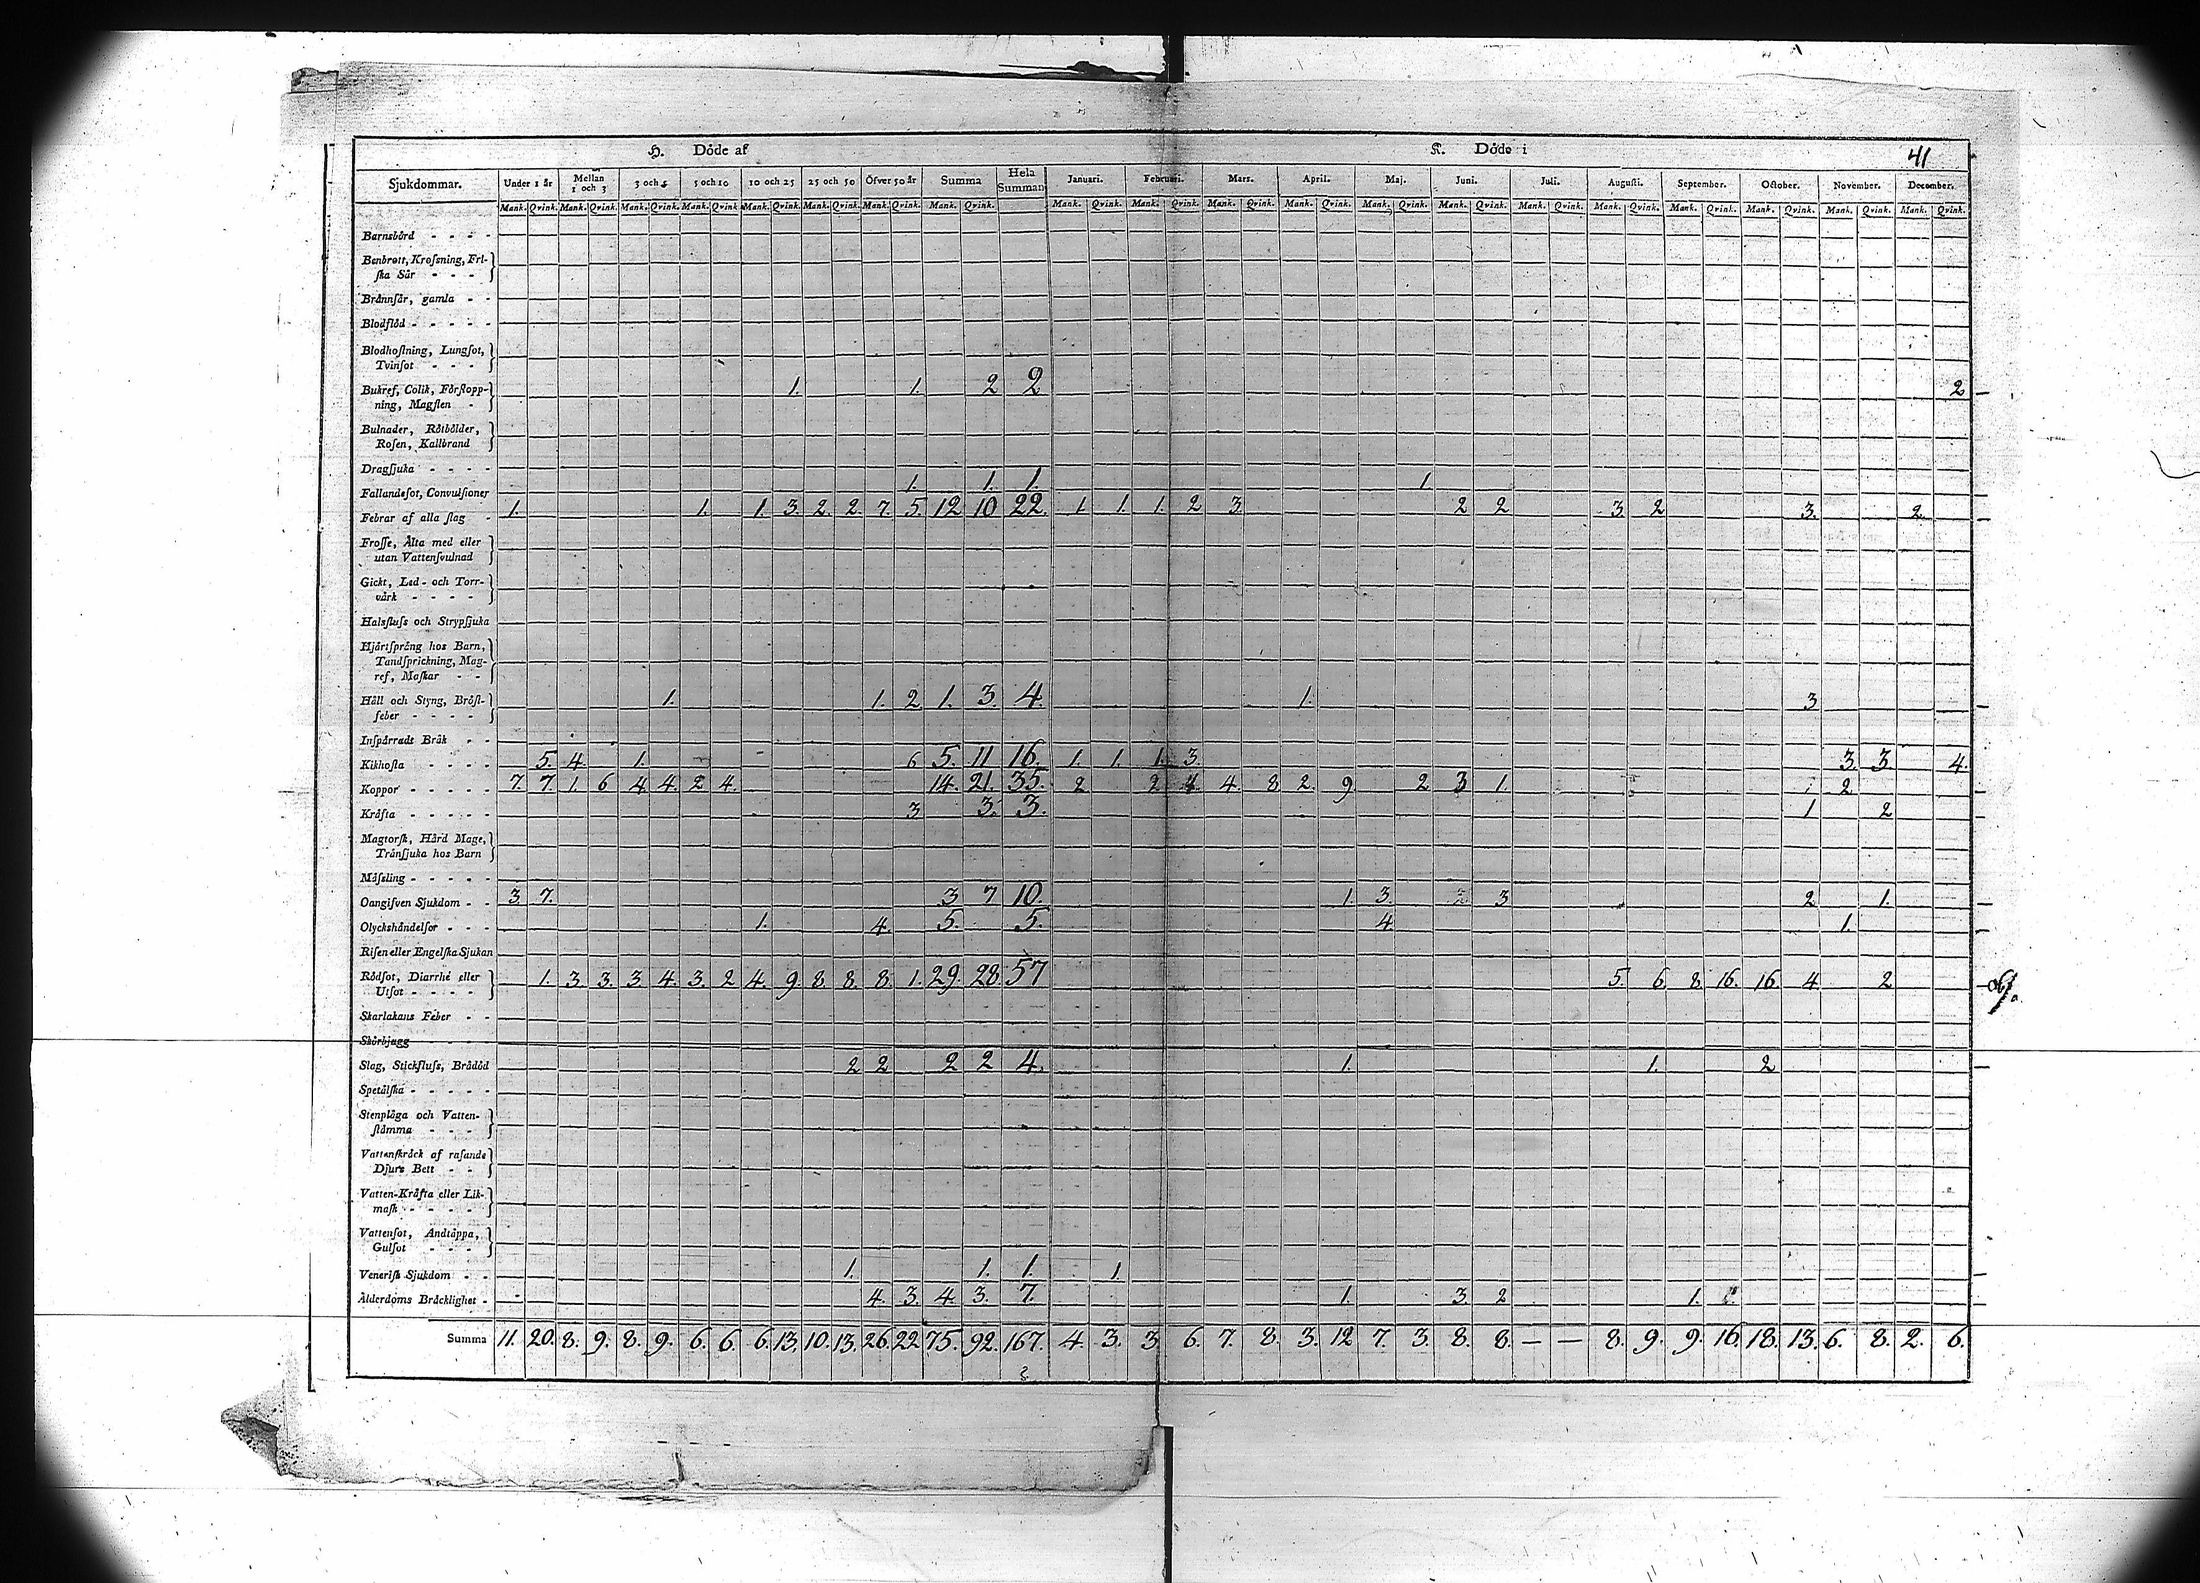 41
H. Döde af K. Döde i
Sjukdommar. Under 1 år Mellan 1 och 3 3 och 5 5 och 10 10 och 25 25 och 50 Öfver 50 år Summa Hela Summan Januari. Februari. Mars. April. Maj. Juni. Juli. Augusti. September. October. November. December.
Mank. Qvink. Mank. Qvink. Mank. Qvink. Mank. Qvink. Mank. Qvink. Mank. Qvink. Mank. Qvink. Mank. Qvink. Mank. Qvink. Mank. Qvink. Mank. Qvink. Mank. Qvink. Mank. Qvink. Mank. Qvink. Mank. Qvink. Mank. Qvink. Mank. Qvink. Mank. Qvink. Mank. Qvink. Mank. Qvink.
Barnsbörd
Benbrott, Krosning, Fri-
ska Sår
Brännsår, gamla
Blodflöd
Blodhostning, Lungsot,
Tvinsot
Bukref, Colik, Förstopp- 1. 1. 2 2 2
ning, Magsten
Bulnader, Rötbölder,
Rosen, Kallbrand
Dragsjuka
Fallandesot, Convulsioner 1. 1. 1. 1.
Febrar af alla slag 1. 1. 1. 3. 2. 2. 7. 5. 12 10 22. 1. 1. 1. 2 3. 2 2 3. 2 3. 2.
Frosse, Älta med eller
utan Vattensvulnad
Gickt, Led- och Torr-
värk
Halsfluss och Strypsjuka
Hjärtsprång hos Barn,
Tandsprickning, Mag-
ref, Maskar
Håll och Styng, Bröst- 1. 1. 2 1. 3. 4. 1. 3
feber
Inspärradt Bråk
Kikhosta 5. 4. 1. 6 5. 11 16. 1. 1. 1. 3. 3. 3. 4.
Koppor 7. 7. 1. 6 4. 4. 2 4. 14. 21. 35. 2 2 4. 4. 8 2. 9 2 3 1. 2
Kräfta 3 3. 3. 1 2
Magtorsk, Hård Mage,
Trånsjuka hos Barn
Mässling
Oangifven Sjukdom 3. 7. 3 7 10. 1. 3. 3 2 1.
Olyckshändelsor 1. 4. 5. 5. 4. 1.
Risen eller Engelska Sjukan
Rödsot, Diarrhé eller 1. 3. 3. 3. 4. 3. 2 4. 9. 8. 8. 8. 1. 29. 28. 57 5. 6 8 16. 16. 4. 2
Utsot
Skarlakans Feber
Skörbjugg
Slag, Stickfluss, Brådöd 2 2 2 2 4. 1. 1. 2
Spetälska
Stenplåga och Vatten-
stämma
Vattenskräck af rasande
Djurs Bett
Vatten-Kräfta eller Lik-
mask
Vattensot, Andtäppa,
Gulsot
Venerisk Sjukdom 1. 1. 1. 1.
Ålderdoms Bräcklighet 4. 3. 4. 3. 7. 1. 3. 2 1.
Summa 11. 20. 8. 9. 8. 9. 6. 6. 6. 13. 10. 13. 26. 22 75. 92. 167. 4. 3. 3 6. 7. 8. 3. 12 7. 3. 8. 8. — — 8. 9. 9. 16. 18. 13. 6. 8. 2. 6.